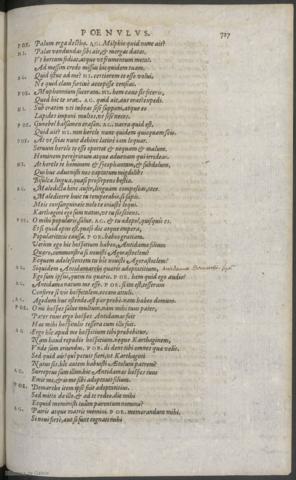 POENVLVS. 727
POE. Palum erga dectha. AG. Milphio quid nunc ait?
MI. Palas vendundas sibi ait, & mergas datas.
Vt hortum fodiat, atque vt frumentum metat.
Ad messim credo missus hic quidem tuam.
AG. Quid istuc ad me? MI. certiorem te esse volui,
Ne quid clam furtiue accepisse censeas.
POE. Muphonnium sucorahim. MI. hem caue sis feceris,
Quod hic te orat. AG. quid ait, aut orat? expedi.
MI. Sub cratim vti iubeas sese supponi, atque eo
Lapides imponi multos, vt sese neces.
POE. Gunebel balsameni erasan. AG. narra quid est,
Quid ait? MI. non hercle nunc quidem quicquam scio.
POE. At vt scias nunc dehinc latine iam loquar.
Seruum hercle te esse oportet & nequam & malum.
Hominem peregrinum atque aduenam qui irrideas.
MI. At hercle te hominem & sycophantam, & subdolum,
Qui huc aduenisti nos captatum migdilix
Bisulca lingua, quasi proserpens bestia.
AG. Maledicta hinc aufer, linguam compescas, atec.
Maledicere huic tu temperabis, si sapis.
Meis consanguineis nolo te iniuste loqui.
Karthagini ego sum natus, vt tu sis sciens.
POE. O mi popularis, salue. AG. & tu edepol, quisquis es.
Et si quid opus est, quaeso dic atque impera,
Popularitatis causa. POE. habeo gratiam.
Verum ego hic hospitium habeo, Antidamae filium
Quaero, commonstra si nouisti Agorastoclem?
Equem adolescentem tu hic nouisti Agorastoclem?
AG. Siquidem Antidamarchi quaeris adoptatitium,
Ego sum ipsus, quem tu quaeris. POE. hem quid ego audio?
AG. Antidamae natum me esse. POE. si ita est, tesseram
Conferre si vis hospitalem, eccam attuli.
AG. Agedum huc ostende, est par probè, nam habeo domum.
POE. O mi hospes salue multum, nam mihi tuus pater,
Pater tuus ergo hospes Antidamas fuit
Haec mihi hospitalis tessera cum illo fuit.
AG. Ergo hîc apud me hospitium tibi praebebitur.
Nam haud repudio hospitium, neque Karthaginem,
Vnde sum oriundus. POE. di dent tibi omnes quae velis.
Sed quid ais? qui potuit fieri, vt Karthagini
Natus sis, hîc autem habuisti Aetolum patrem?
AG. Surreptus sum illinc, hic Antidamas hospes tuus
Emit me, & is me sibi adoptauit filium.
POE. Demarcho item ipse fuit adoptatitius.
Sed mitto de illo, & ad te redeo, dic mihi
Ecquid meministi tuum parentum nomina?
AG. Patris atque matris memini. POE. memorandum mihi,
Si noui forte, aut si sunt cognati mihi